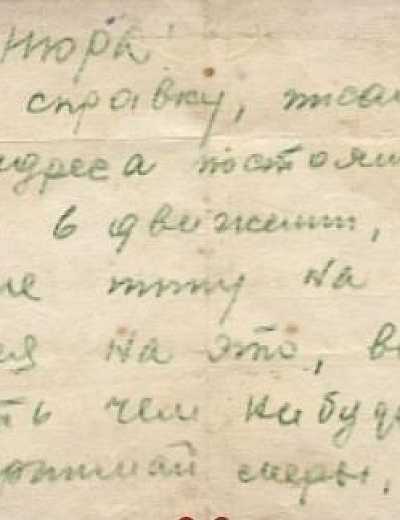 Нюра!
справку, писал
адреса постоян
в движении,
не пишу на
ся на это, в
ть чем нибуд
принимай меры,